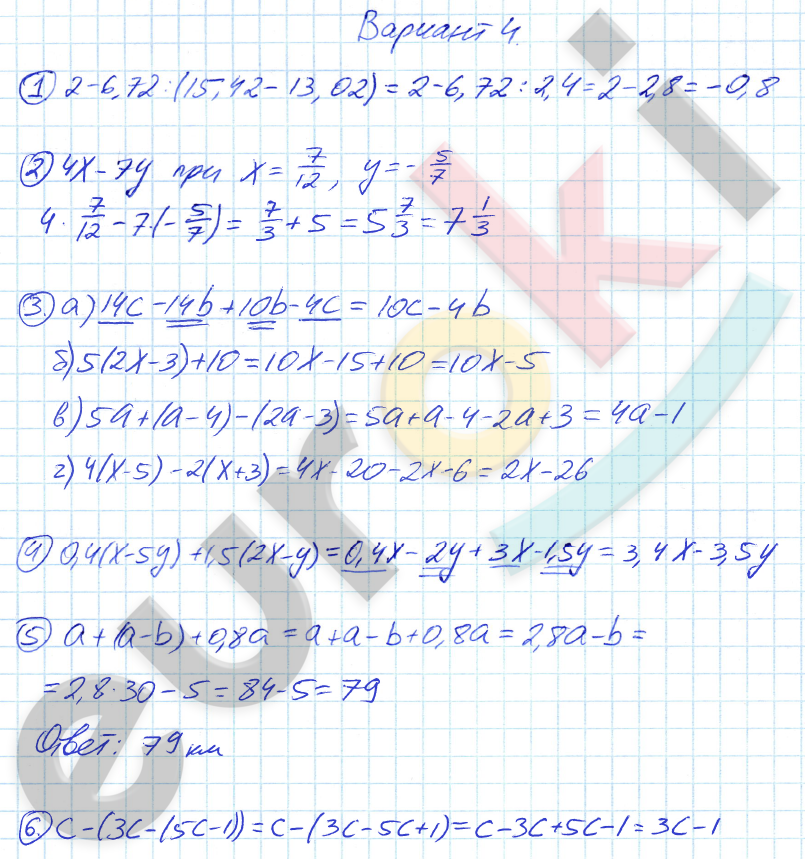 Вариант 4.
① 2-6,72:(15,42-13,02)=2-6,72:2,4=2-2,8=-0,8
② 4x-7y при x=7/12, y=-5/7
4·7/12-7·(-5/7)=7/3+5=5 7/3=7 1/3
③ а) 14c-14b+10b-4c=10c-4b
б) 5(2x-3)+10=10x-15+10=10x-5
в) 5a+(a-4)-(2a-3)=5a+a-4-2a+3=4a-1
г) 4(x-5)-2(x+3)=4x-20-2x-6=2x-26
④ 0,4(x-5y)+1,5(2x-y)=0,4x-2y+3x-1,5y=3,4x-3,5y
⑤ a+(a-b)+0,8a=a+a-b+0,8a=2,8a-b=
=2,8·30-5=84-5=79
Ответ: 79 км
⑥ c-(3c-(5c-1))=c-(3c-5c+1)=c-3c+5c-1=3c-1
euroki